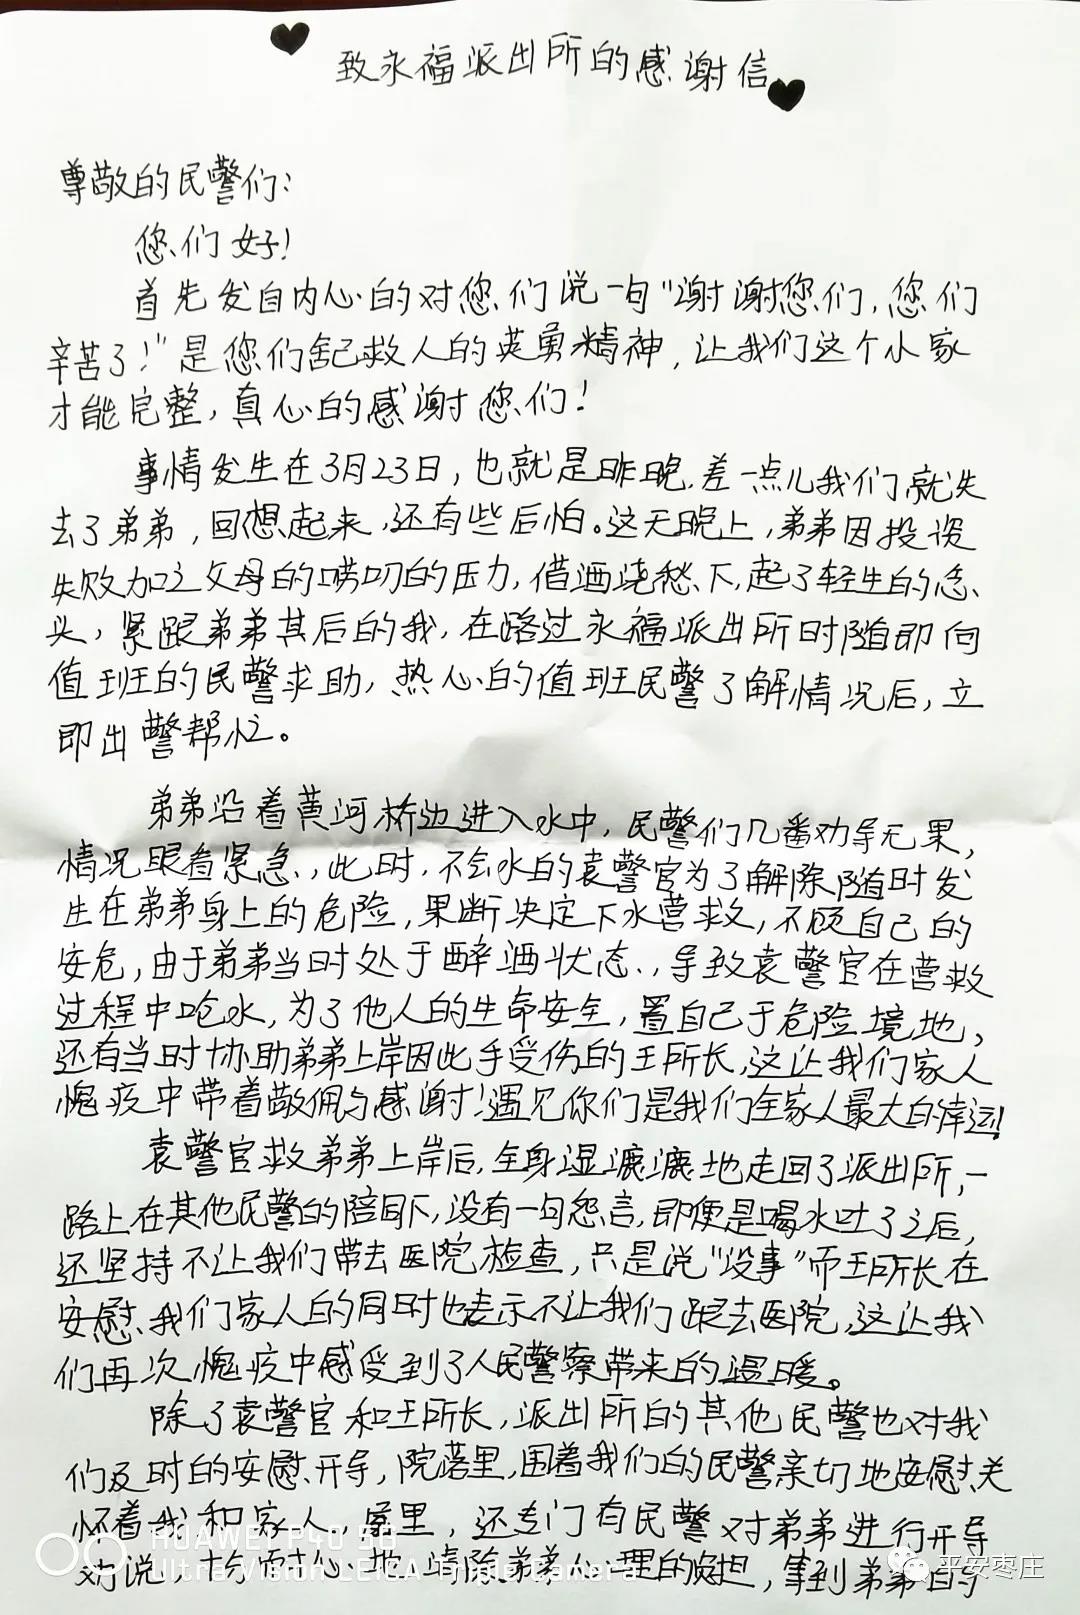 致永福派出所的感谢信
尊敬的民警们:
您们好!
首先发自内心的对您们说一句“谢谢您们,您们
辛苦了!”是您们舍己救人的英勇精神,让我们这个小家
才能完整,真心的感谢您们!
事情发生在3月23日,也就是昨晚,差一点儿我们就失
去了弟弟,回想起来,还有些后怕。这天晚上,弟弟因投资
失败加之父母的唠叨的压力,借酒浇愁下,起了轻生的念
头,紧跟弟弟其后的我,在路过永福派出所时随即向
值班的民警求助,热心的值班民警了解情况后,立
即出警帮忙。
弟弟沿着黄河桥边进入水中,民警们几番劝导无果,
情况眼看紧急,此时,不会水的袁警官为了解除随时发
生在弟弟身上的危险,果断决定下水营救,不顾自己的
安危,由于弟弟当时处于醉酒状态,导致袁警官在营救
过程中呛水,为了他人的生命安全,置自己于危险境地,
还有当时协助弟弟上岸因此手受伤的王所长,这让我们家人
愧疚中带着敬佩与感谢!遇见你们是我们全家人最大的幸运!
袁警官救弟弟上岸后,全身湿漉漉地走回了派出所,一
路上在其他民警的陪同下,没有一句怨言,即便是喝水吐了之后,
还坚持不让我们带去医院检查,只是说“没事”而王所长在
安慰我们家人的同时也表示不让我们跟去医院,这让我
们再次愧疚中感受到了人民警察带来的温暖。
除了袁警官和王所长,派出所的其他民警也对我
们及时的安慰开导,院落里,围着我们的民警亲切地安慰关
怀着我和家人,屋里,还专门有民警对弟弟进行开导
劝说,十分耐心地清除弟弟心理的负担,等到弟弟的
HUAWEI P40 5G
Ultra Vision LEICA Triple Camera
平安枣庄